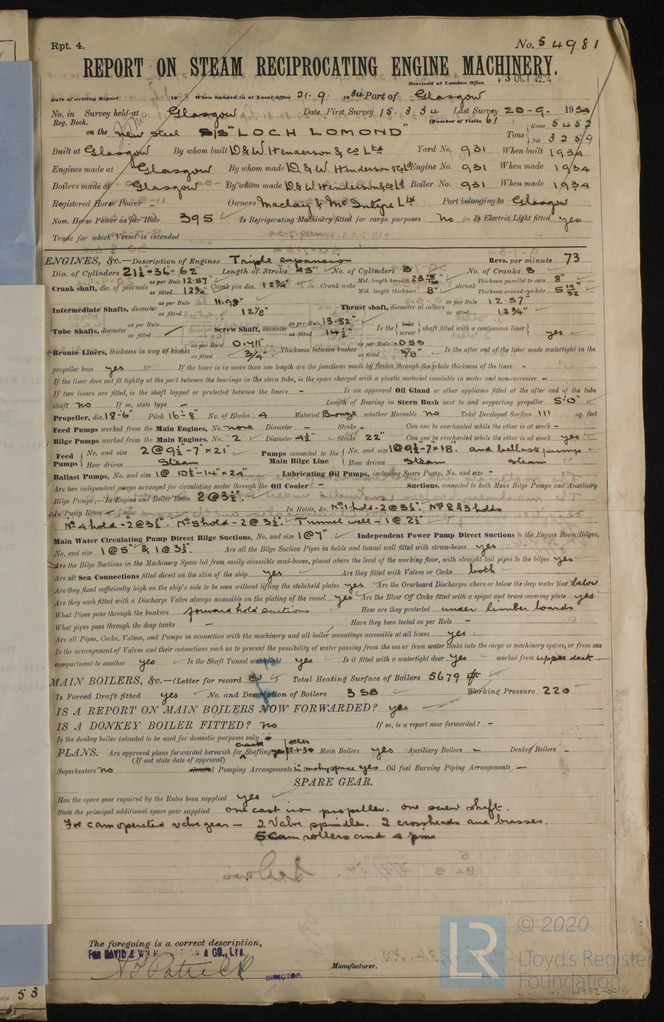 Rpt. 4.
No. 54981
REPORT ON STEAM RECIPROCATING ENGINE MACHINERY.
Received at London Office
Date of writing Report 19 When handed in at Local Office 21-9- 1934 Port of Glasgow
No. in Survey held at Glasgow Date, First Survey 15.3.34 Last Survey 20-9- 1934
Reg. Book. (Number of Visits 61)
on the New Steel S/S "LOCH LOMOND" Tons Gross 5452
Net 3259
Built at Glasgow By whom built D & W Henderson & Co Ltd Yard No. 931 When built 1934
Engines made at Glasgow By whom made D & W Henderson & Co Ltd Engine No. 931 When made 1934
Boilers made at Glasgow By whom made D & W Henderson & Co Ltd Boiler No. 931 When made 1934
Registered Horse Power Owners Maclay & McIntyre Ltd Port belonging to Glasgow
Nom. Horse Power as per Rule 395 Is Refrigerating Machinery fitted for cargo purposes No Is Electric Light fitted yes
Trade for which Vessel is intended
ENGINES, &c.—Description of Engines Triple expansion Revs. per minute 73
Dia. of Cylinders 21½-36-62" Length of Stroke 45" No. of Cylinders 3 No. of Cranks 3
Crank shaft, dia. of journals as per Rule 12.57 Crank pin dia. 12¾" Crank webs Mid. length breadth Thickness parallel to axis 8"
as fitted 12¾" Mid. length thickness 8" shrunk Thickness around eye-hole
Intermediate Shafts, diameter as per Rule 11.98" Thrust shaft, diameter at collars as per Rule 12.57
as fitted 12⅛" as fitted 12¾"
Tube Shafts, diameter as per Rule Screw Shaft, diameter as per Rule 13.52" Is the screw shaft fitted with a continuous liner yes
as fitted as fitted
Bronze Liners, thickness in way of bushes as per Rule 0.711" Thickness between bushes as per Rule Is the after end of the liner made watertight in the
as fitted ¾" as fitted ⅝"
propeller boss yes If the liner is in more than one length are the junctions made by fusion through the whole thickness of the liner -
If the liner does not fit tightly at the part between the bearings in the stern tube, is the space charged with a plastic material insoluble in water and non-corrosive -
If two liners are fitted, is the shaft lapped or protected between the liners - Is an approved Oil Gland or other appliance fitted at the after end of the tube
shaft No If so, state type - Length of Bearing in Stern Bush next to and supporting propeller 5'-0"
Propeller, dia. 18'-6" Pitch 16'-8" No. of Blades 4 Material Bronze whether Moveable No Total Developed Surface 111 sq. feet
Feed Pumps worked from the Main Engines, No. none Diameter - Stroke - Can one be overhauled while the other is at work -
Bilge Pumps worked from the Main Engines, No. 2 Diameter 4½" Stroke 22" Can one be overhauled while the other is at work yes
Feed Pumps No. and size 2 @ 9½-7"x21" Pumps connected to the Main Bilge Line No. and size 1 @ 9½-7x18" and ballast pump
How driven Steam How driven Steam Steam
Ballast Pumps, No. and size 1 @ 10½-14"x24" Lubricating Oil Pumps, including Spare Pump, No. and size -
Are two independent means arranged for circulating water through the Oil Cooler - Suctions, connected to both Main Bilge Pumps and Auxiliary
Bilge Pumps;—In Engine and Boiler Room 2 @ 3½"
In Pump Room - In Holds, &c. No 1 hold - 2 @ 3½", Nos 2 & 3 holds
No 4 hold - 2 @ 3½". No 5 hold - 2 @ 3½" Tunnel well - 1 @ 2½"
Main Water Circulating Pump Direct Bilge Suctions, No. and size 1 @ 7" Independent Power Pump Direct Suctions to the Engine Room Bilges,
No. and size 1 @ 5" & 1 @ 3½" Are all the Bilge Suction Pipes in holds and tunnel well fitted with strum-boxes yes
Are the Bilge Suctions in the Machinery Space led from easily accessible mud-boxes, placed above the level of the working floor, with straight tail pipes to the bilges yes
Are all Sea Connections fitted direct on the skin of the ship yes Are they fitted with Valves or Cocks both
Are they fixed sufficiently high on the ship's side to be seen without lifting the stokehold plates yes Are the Overboard Discharges above or below the deep water line below
Are they each fitted with a Discharge Valve always accessible on the plating of the vessel yes Are the Blow Off Cocks fitted with a spigot and brass covering plate yes
What Pipes pass through the bunkers forward hold suctions How are they protected under limber boards
What pipes pass through the deep tanks - Have they been tested as per Rule -
Are all Pipes, Cocks, Valves, and Pumps in connection with the machinery and all boiler mountings accessible at all times yes
Is the arrangement of Valves and their connections such as to prevent the possibility of water passing from the sea or from water tanks into the cargo or machinery spaces, or from one
compartment to another yes Is the Shaft Tunnel watertight yes Is it fitted with a watertight door yes worked from upper deck
MAIN BOILERS, &c.—(Letter for record) Total Heating Surface of Boilers 5679
Is Forced Draft fitted yes No. and Description of Boilers 3 SB Working Pressure 220
IS A REPORT ON MAIN BOILERS NOW FORWARDED? yes
IS A DONKEY BOILER FITTED? No If so, is a report now forwarded? -
Is the donkey boiler intended to be used for domestic purposes only
PLANS. Are approved plans forwarded herewith for Shafting Main Boilers yes Auxiliary Boilers - Donkey Boilers -
(If not state date of approval)
Superheaters No General Pumping Arrangements in mchy space yes Oil fuel Burning Piping Arrangements -
SPARE GEAR.
Has the spare gear required by the Rules been supplied yes
State the principal additional spare gear supplied one cast iron propeller. one screw shaft.
For cam operated valve gear — 2 Valve spindles. 2 crossheads and brasses.
5 cam rollers and 4 pins
The foregoing is a correct description,
FOR DAVID & W. & CO., LTD.
Manufacturer.
DIRECTOR
53
LR
© 2020
Lloyd's Register
Foundation